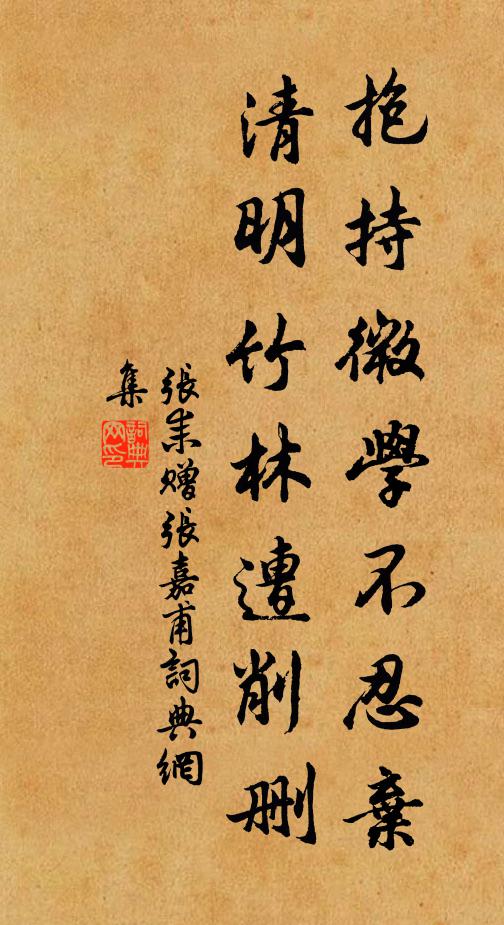 抱持微學不忍棄
清明竹林遭削刪
張耒贈張嘉甫詞典網
集
詞典網印